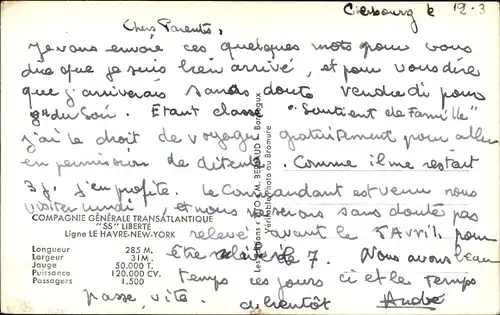 Cherbourg le 12-3
Chers Parents,
Je vous envoie ces quelques mots pour vous
dire que je suis bien arrivé, et pour vous dire
que j'arriverais sans doute vendredi pour
du Soir. Etant classé "Soutient de Famille"
j'ai le droit de voyager gratuitement pour aller
en permission de détente. Comme il me restait
3 j. j'en profite. Le Commandant est venu nous
visiter lundi, et nous ne serons sans doute pas
relevé avant le 5 Avril, pour
être relevé le 7. Nous avons beau
temps ces jours ci et le temps
passe vite. à bientôt André
COMPAGNIE GÉNÉRALE TRANSATLANTIQUE
"SS" LIBERTÉ
Ligne LE HAVRE-NEW-YORK
Longueur 285 M.
Largeur 31 M.
Jauge 50.000 T.
Puissance 120.000 CV.
Passagers 1.500
Véritable Photo au Bromure